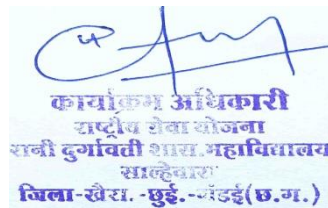 कार्यक्रम अधिकारी
राष्ट्रीय सेवा योजना
रानी दुर्गावती शास.महाविद्यालय
साल्हेवारा
जिला-खैरा.-छुई.-गंडई(छ.ग.)